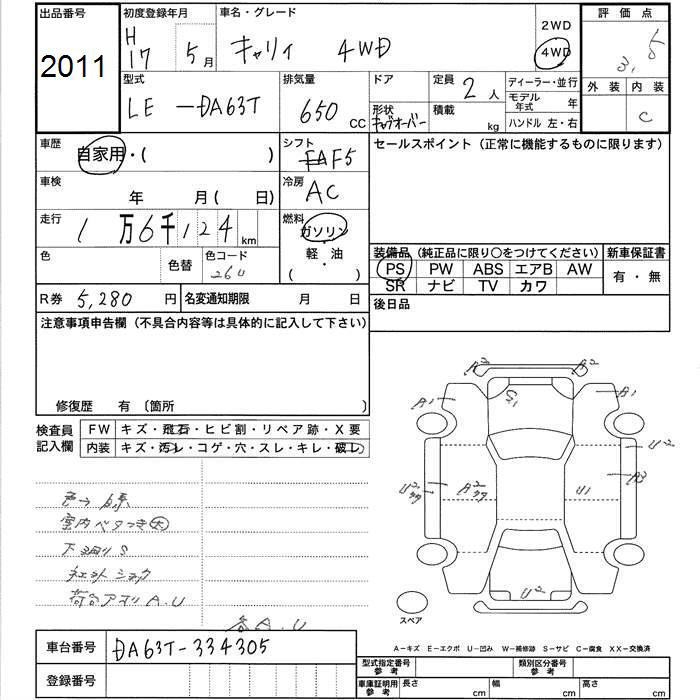 出品番号 初度登録年月 車名・グレード 2WD 評価点
2011 H 17 5月 キャリィ 4WD 4WD 3.5
型式 排気量 ドア 定員 2人 ディーラー・並行 外装 内装
LE-DA63T 650 CC 形状 キャブオーバー 積載 kg モデル年式 年 C
ハンドル 左・右
車歴 自家用・( ) シフト FAF5 セールスポイント(正常に機能するものに限ります)
車検 年 月( 日) 冷房 AC
走行 1万6千124km 燃料 ガソリン・軽・油( )
色 色替 色コード 26U 装備品(純正品に限り○をつけてください) 新車保証書
PS PW ABS エアB AW 有・無
SR ナビ TV カワ
R券 5,280円 名変通知期限 月 日 後日品
注意事項申告欄(不具合内容等は具体的に記入して下さい)
修復歴 有〔箇所 〕
検査員記入欄 FW キズ・飛石・ヒビ割・リペア跡・X要
内装 キズ・汚レ・コゲ・穴・スレ・キレ・破レ
A2 A2
A1 G1 A1
U2 A2 U2
A2
U1
U2
室内ベタつき大
下廻りS
荷台アオリ A.U
各A.U
スペア
A-キズ E-エクボ U-凹み W-補修跡 S-サビ C-腐食 XX-交換済
車台番号 DA63T-334305
登録番号
型式指定番号 参考 類別区分番号 参考
車庫証明用 参考 長さ cm 幅 cm 高さ cm